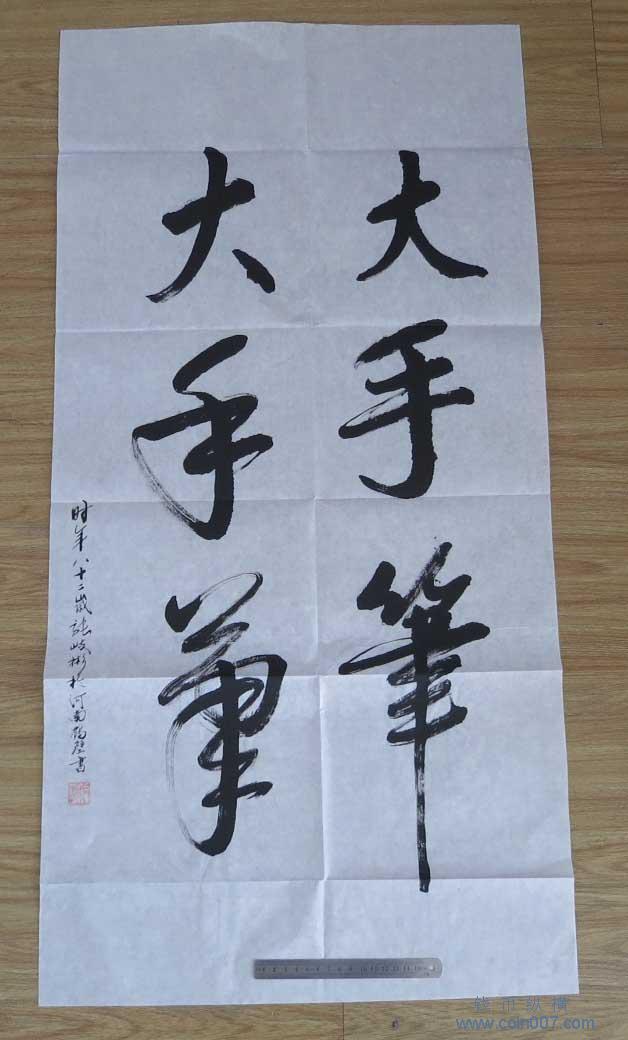 大手筆
大手筆
时年八十二岁張岐彬於河南鹤壁書
钱币纵横
www.coin007.com